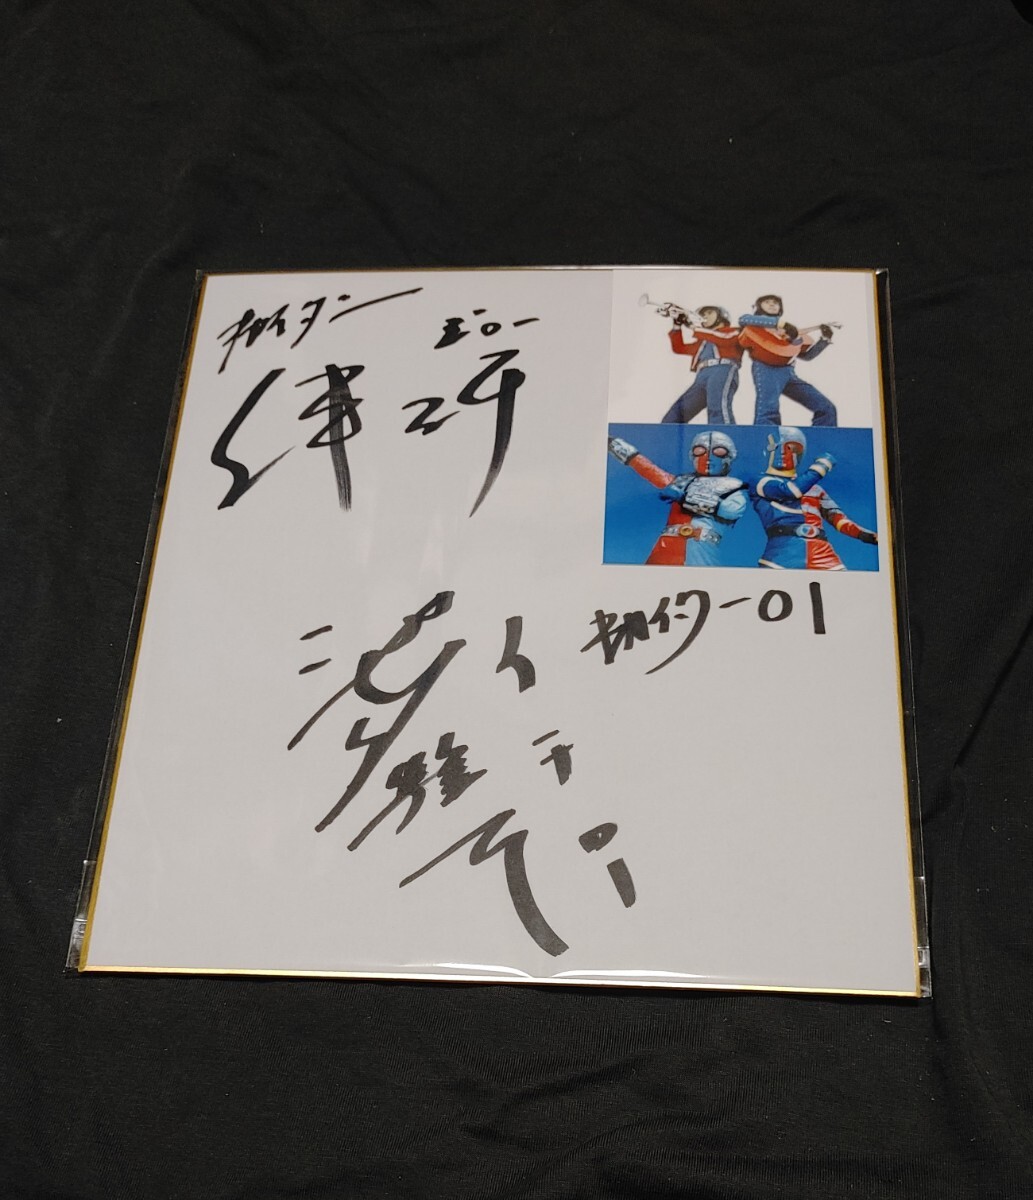 キカイダー
ジロー
伴 大介
キカイダー01
イチロー
池田 駿介